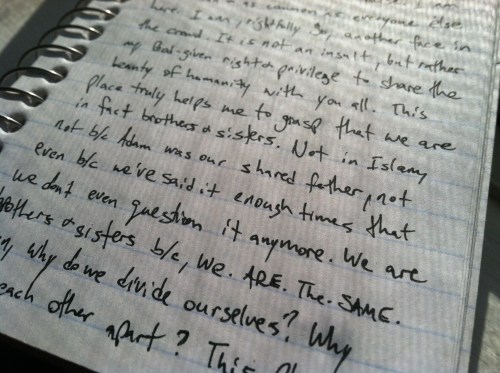 as common as everyone else
here. I am, rightfully so, another face in
the crowd. It is not an insult, but rather
my God-given right & privilege to share the
beauty of humanity with you all. This
place truly helps me to grasp that we are
in fact brothers & sisters. Not in Islam,
not b/c Adam was our shared father, not
even b/c we've said it enough times that
we don't even question it anymore. We are
brothers & sisters b/c, We. ARE. The. SAME.
why do we divide ourselves? Why
each other apart? This